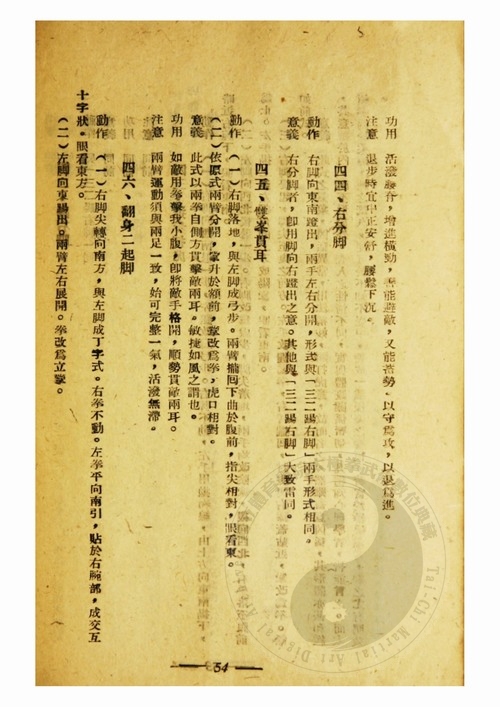 功用　活潑腰脊，增進橫勁，
又能蓄勢。以守爲攻，以退爲進。
注意　退步時宜中正安舒，腰鬆下沉。
四四、右分脚
動作　右脚向東南蹬出，兩手左右分開，形式與「三二踢右脚」兩手形式相同。
意義　右分脚者，卽用脚向右蹬出之意。其他與「三二踢右脚」大致雷同。
四五、雙峯貫耳
動作　（一）右脚落地，與左脚成弓步。兩臂擺囘下曲於腹前，指尖相對，眼看東。
（二）依原式兩臂分開，掌升於額前，掌改爲拳，虎口相對。
意義　此式以兩拳自側方貫擊敵兩耳。敏捷如風之謂也。
功用　如敵用拳擊我小腹，卽將敵手格開，順勢貫敵兩耳。
注意　兩臂運動須與兩足一致，始可完整一氣，活潑無滯。
四六、翻身二起脚
動作　（一）右脚尖轉向南方，與左脚成丁字式。右拳不動。左拳平向南引，貼於右腕部，成交互
十字狀。眼看東方。
（二）左脚向東踢出。兩臂左右展開。拳改爲立掌。
54
Tai-Chi Martial Art Digital